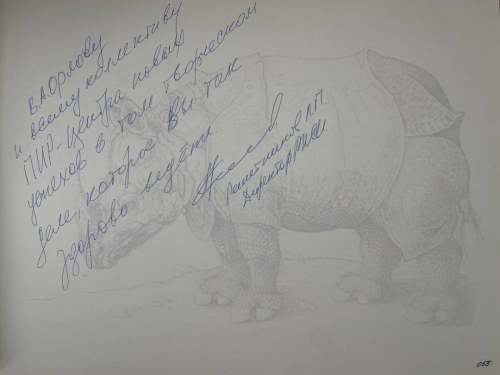 В.А.Орлову
и всему коллективу
ПИР-Центра новых
успехов в том творческом
деле, которое Вы так
здорово ведёте
Директор